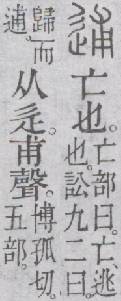 逋 亡也。亡部曰。亡、逃也。訟九二曰。
歸而逋。从辵。甫聲。博孤切。五部。